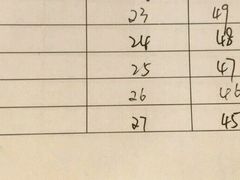 23 49
24 48
25 47
26 46
27 45